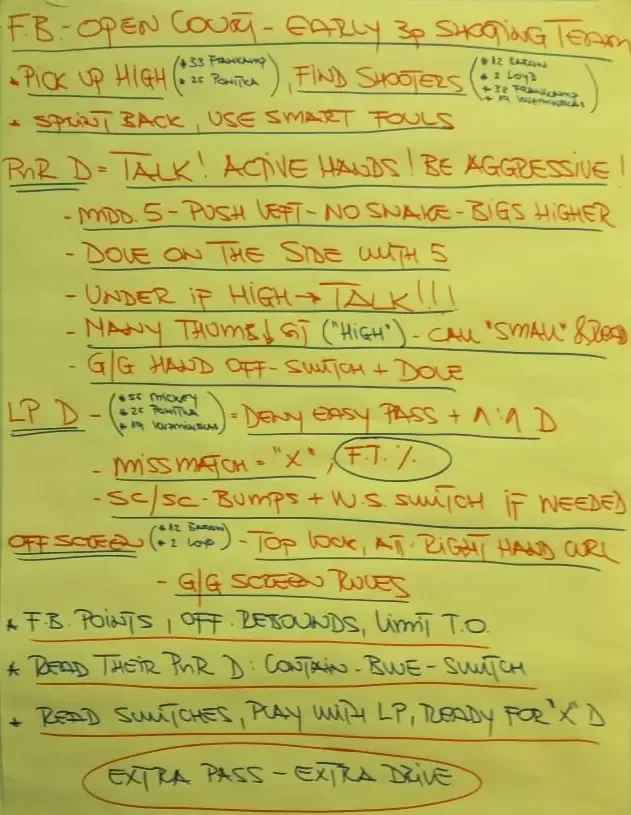 F.B. - OPEN COURT - EARLY 3p SHOOTING TEAM
* PICK UP HIGH (*33 FRANKAMP *25 PONITKA), FIND SHOOTERS (*12 BARON *2 LOYD *33 FRANKAMP *19
* SPRINT BACK, USE SMART FOULS
PnR D = TALK! ACTIVE HANDS! BE AGGRESSIVE!
- MIDD. 5 - PUSH LEFT - NO SNAKE - BIGS HIGHER
- DOVE ON THE SIDE WITH 5
- UNDER IF HIGH → TALK!!!
- MANY THUMB↓ ("HIGH") - CALL "SMALL" & READ
- G/G HAND OFF - SWITCH + DOVE
LP D - (*55 MICKEY *25 PONITKA *19 = DENY EASY PASS + 1:1 D
- MISSMATCH = "X", F.T. %
- SC/SC - BUMPS + W.S. SWITCH IF NEEDED
OFF SCREEN (*12 BARON *2 LOYD) - TOP LOCK, ATT. RIGHT HAND CURL
- G/G SCREEN RULES
* F.B. POINTS, OFF. REBOUNDS, LIMIT T.O.
* READ THEIR PnR D: CONTAIN - BLUE - SWITCH
* READ SWITCHES, PLAY WITH LP, READY FOR "X" D
EXTRA PASS - EXTRA DRIVE